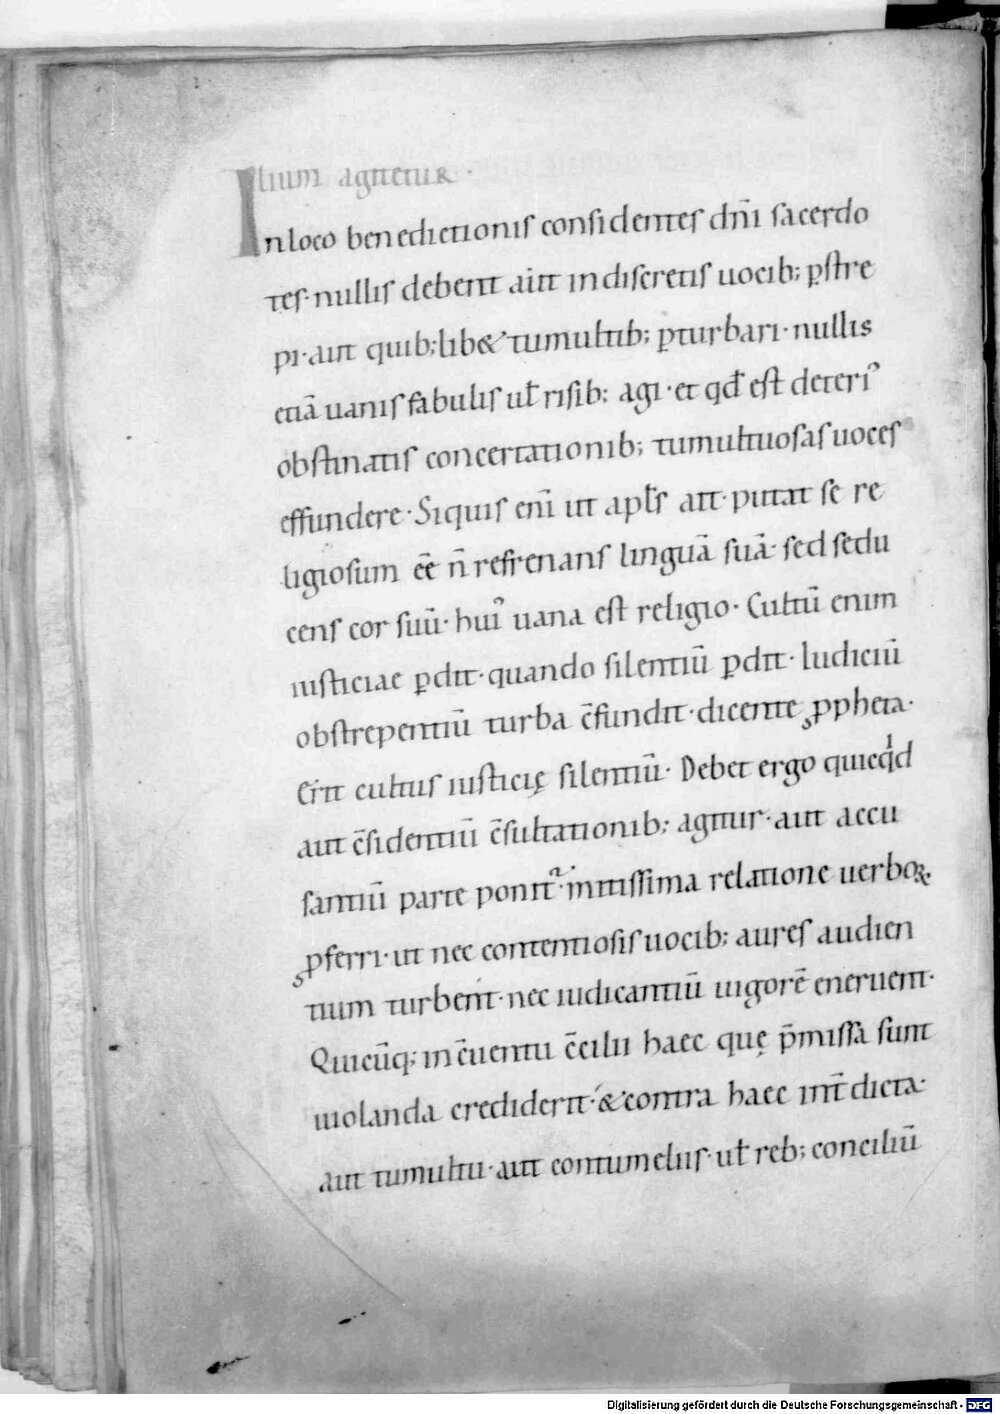 lium agitetur·
In loco benedictionis considentes dn̄i sacerdo
tes· nullis debent aut indiscretis uocib; ꝑstre
pi· aut quib;lib& tumultib; ꝑturbari· nullis
etiā uanis fabulis uƚ risib; agi· et qđ est deteri᾽
obstinatis concertationib; tumultuosas uoces
effundere· Siquis eni̅ ut apƚs ait· putat se re
ligiosum eē n̄ refrenans linguā suā· sed sedu
cens cor suū· hui᾽ uana est religio· Cultū enim
iusticiae ꝑdit· quando silentiū ꝑdit· Iudiciū
obstrepentiū turba c̄fundit· dicente ꝓpheta·
Erit cultus iusticię silentiū· Debet ergo quicqͥd
aut c̄sidentiū c̄sultationib; agitur· aut accu
santiū parte ponit᷑· mitissima relatione uerboꝝ·
ꝓferri· ut nec contentiosis uocib; aures audien
tium turbent· nec iudicantiū uigorē eneruent·
Quicūq; in c̄uentu c̄cilii haec quę p̄missa sunt
uiolanda crediderit· & contra haec int̄dicta·
aut tumultu· aut contumeliis· uƚ reb; conciliū
Digitalisierung gefördert durch die Deutsche Forschungsgemeinschaft - DFG